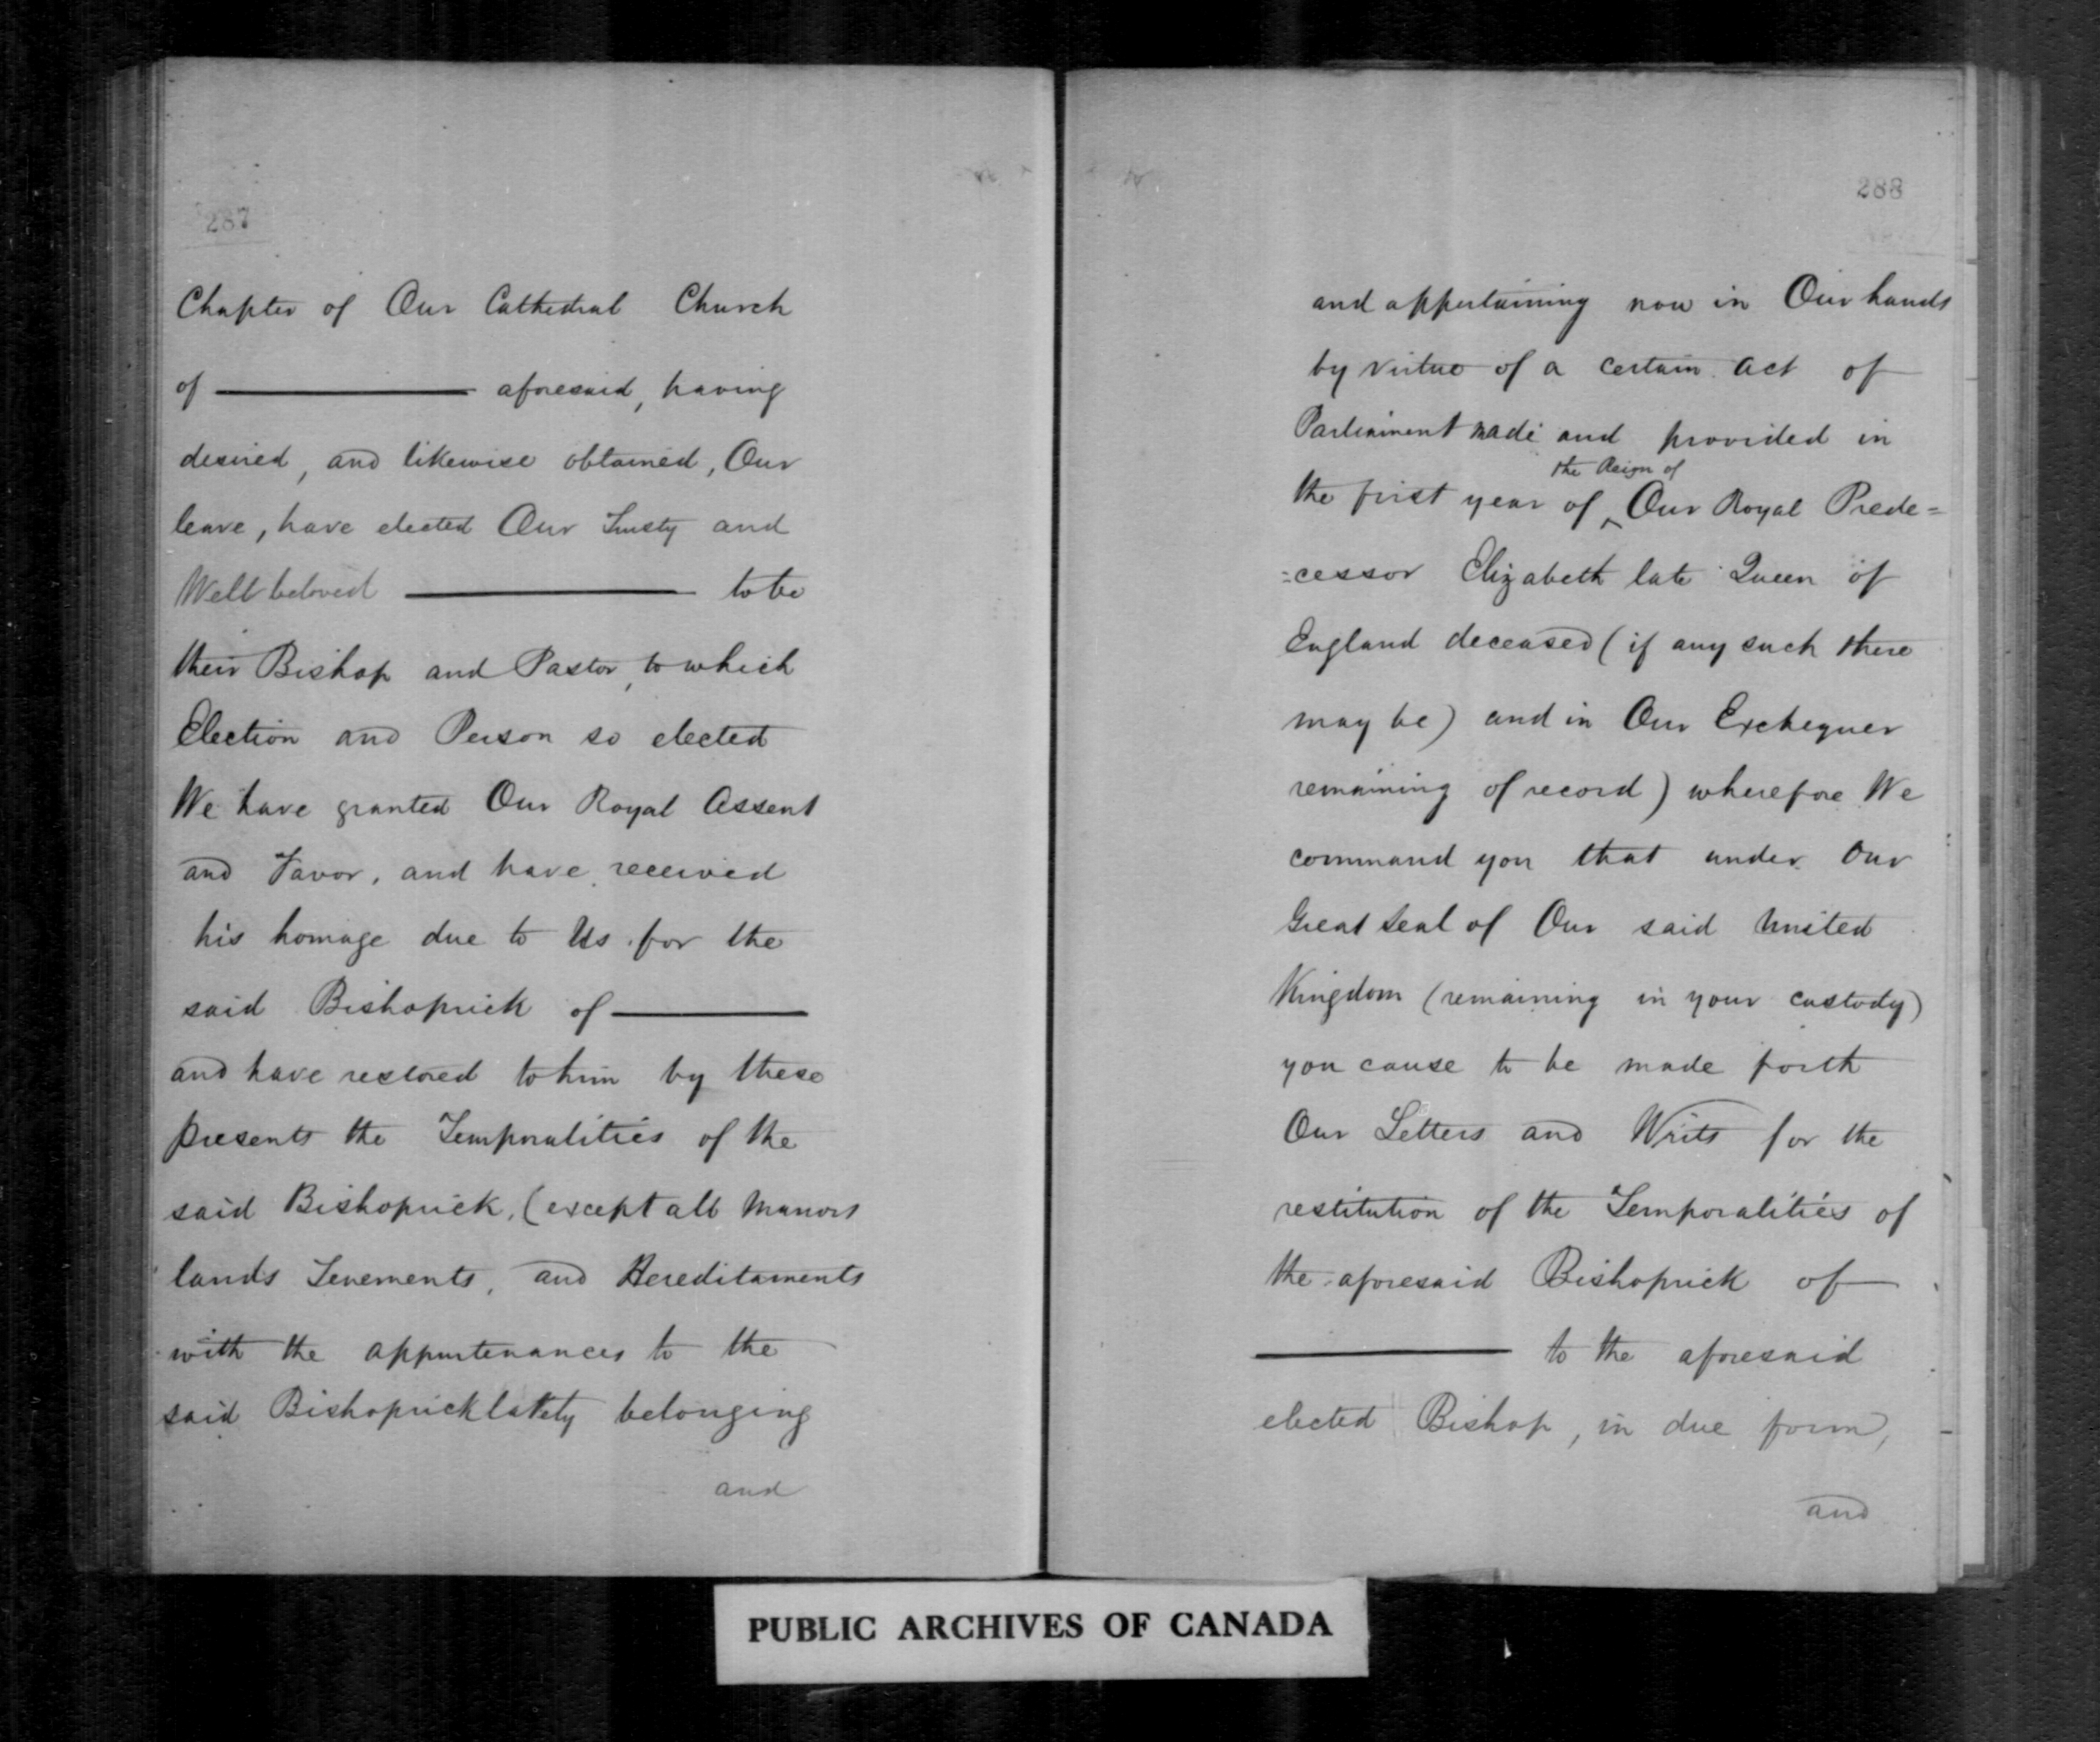 287
Chapter of Our Cathedral Church
of ———— aforesaid, having
desired, and likewise obtained, Our
leave, have elected Our Trusty and
Well beloved ———— to be
their Bishop and Pastor, to which
Election and Person so elected
We have granted Our Royal Assent
and Favor, and have received
his homage due to Us for the
said Bishoprick of ————
and have restored to him by these
presents the Temporalities of the
said Bishoprick, (except all Manors
lands Tenements, and Hereditaments
with the appurtenances to the
said Bishoprick lately belonging
and
288
and appertaining now in Our hands
by virtue of a certain Act of
Parliament made and provided in
the Reign of
the first year of ‸ Our Royal Prede=
=cessor Elizabeth late Queen of
England deceased (if any such there
may be) and in Our Exchequer
remaining of record) wherefore We
command you that under Our
Great Seal of Our said United
Kingdom (remaining in your custody)
you cause to be made forth
Our Letters and Writs for the
restitution of the Temporalities of
the aforesaid Bishoprick of
———— to the aforesaid
elected Bishop, in due form,
and
PUBLIC ARCHIVES OF CANADA